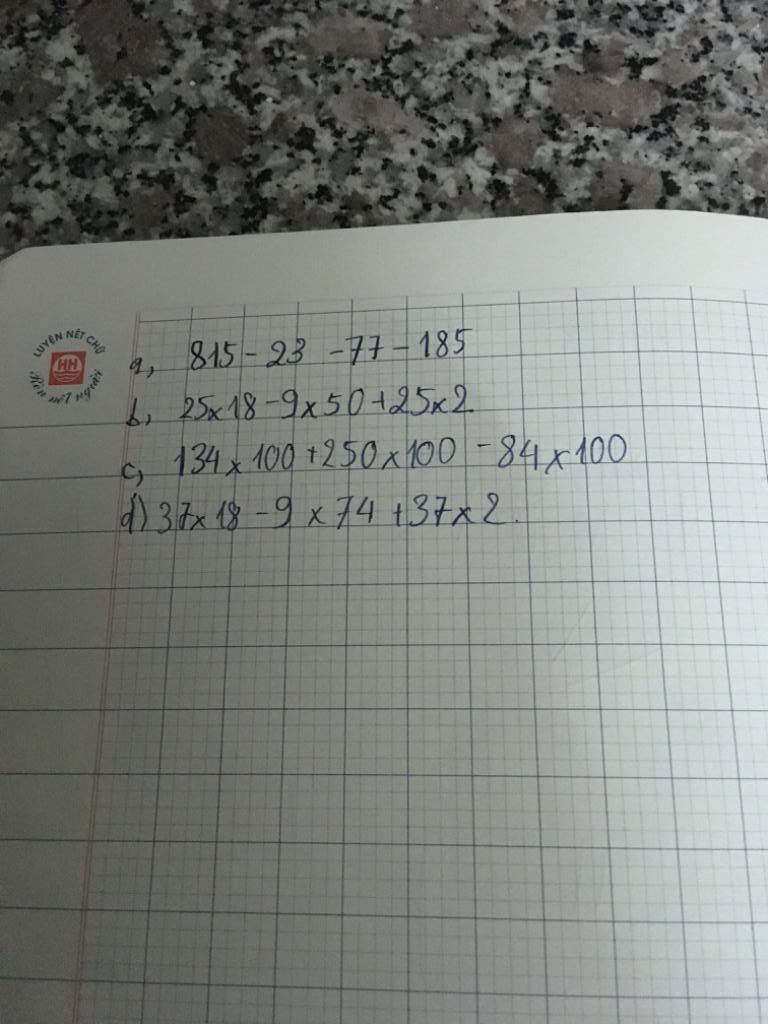 LUYỆN NÉT CHỮ
HH
Rèn nết người
a, 815 - 23 - 77 - 185
b, 25x18 - 9x50 + 25x2
c, 134 x 100 + 250 x 100 - 84 x 100
d) 37x18 - 9 x 74 + 37x2.